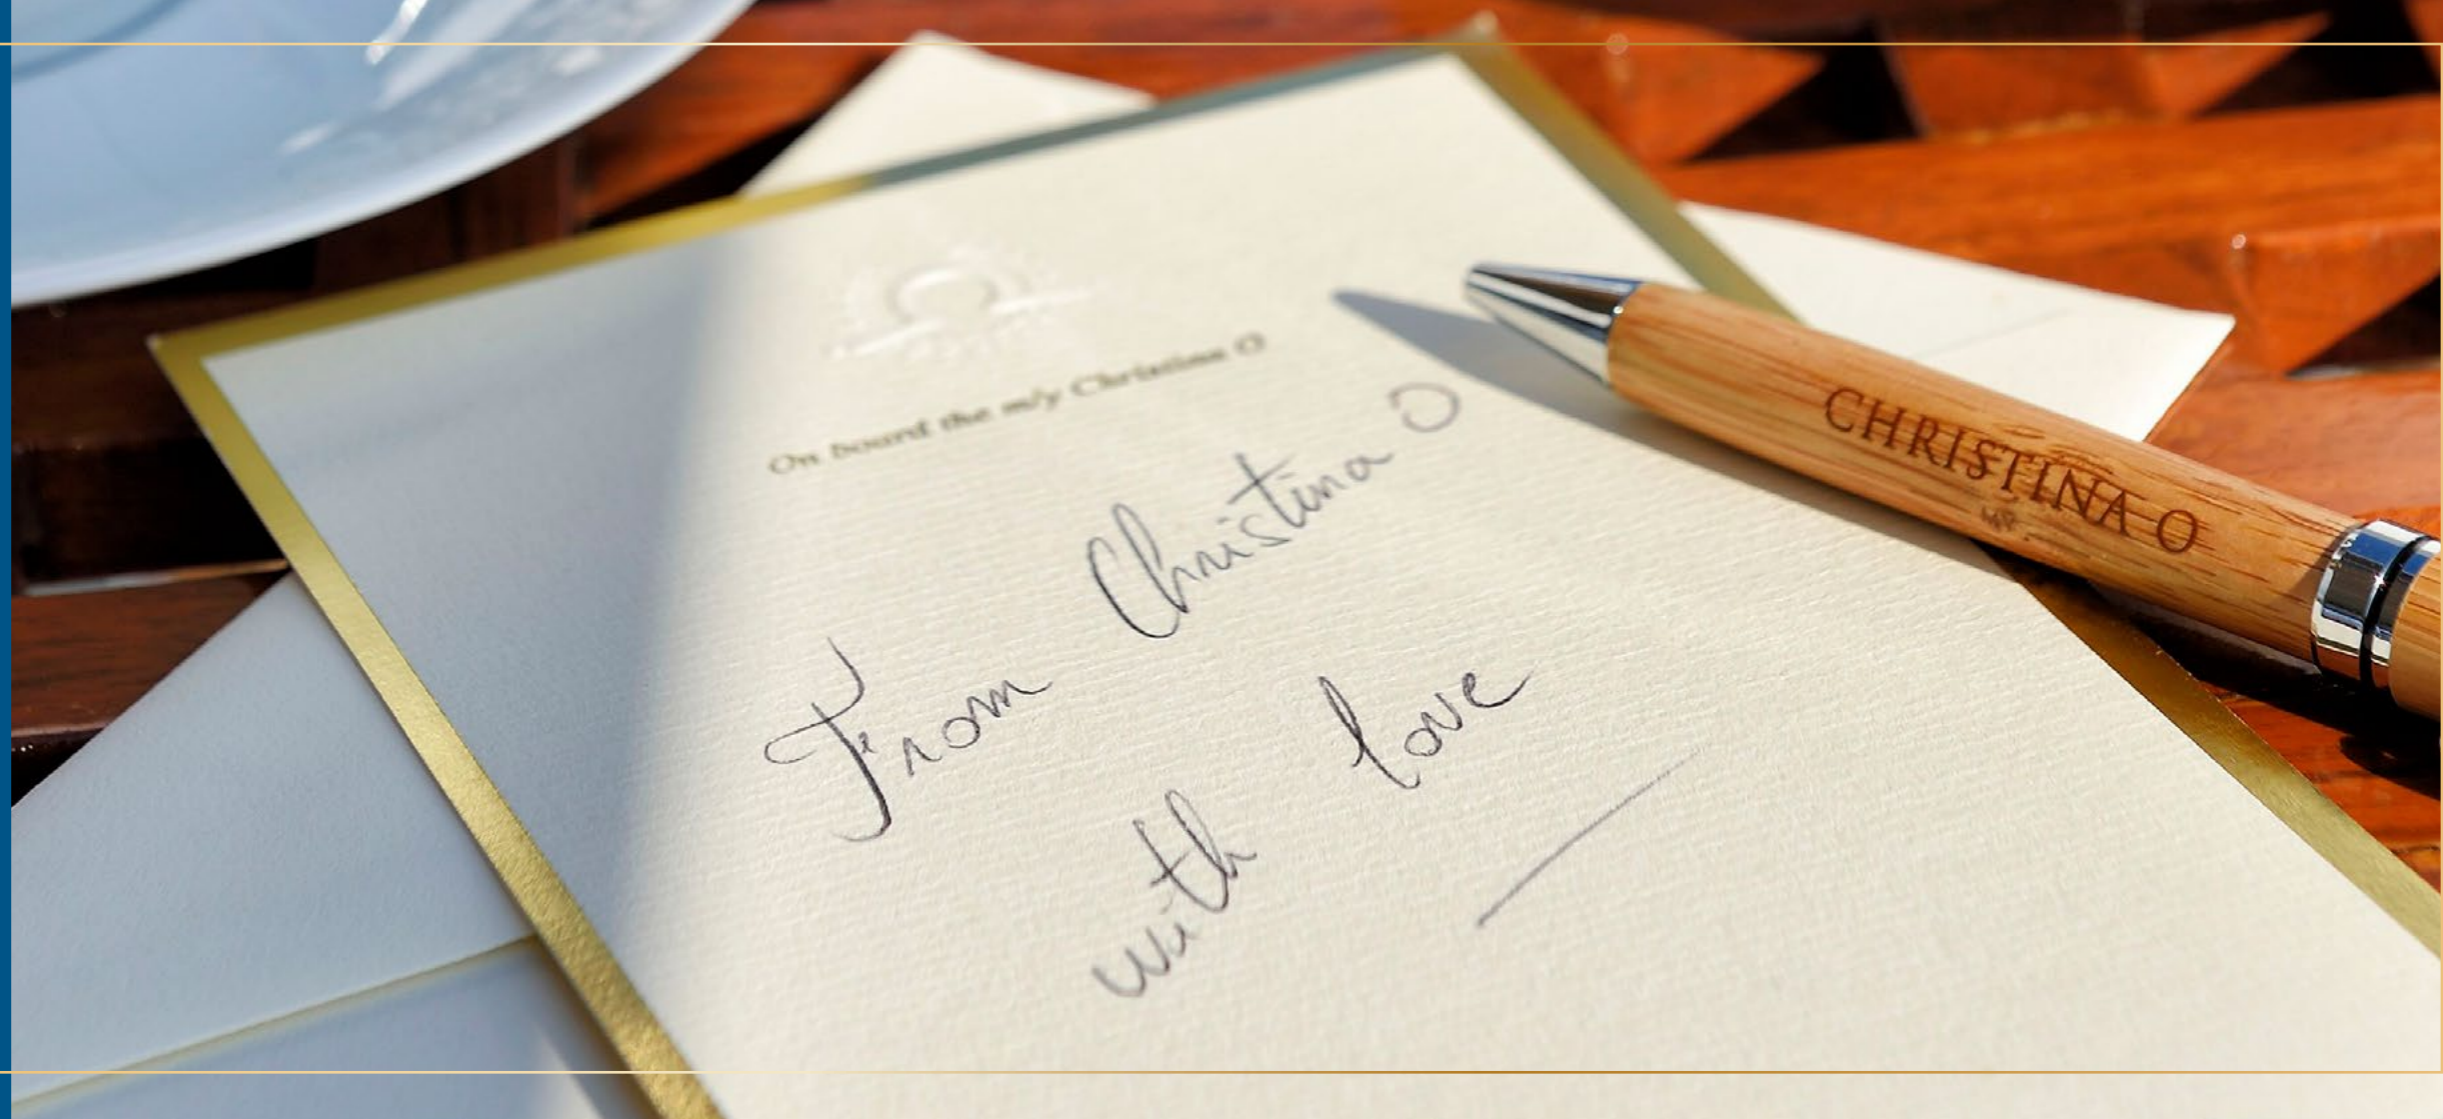 On board the m/y Christina O
From Christina O
with love
CHRISTINA O